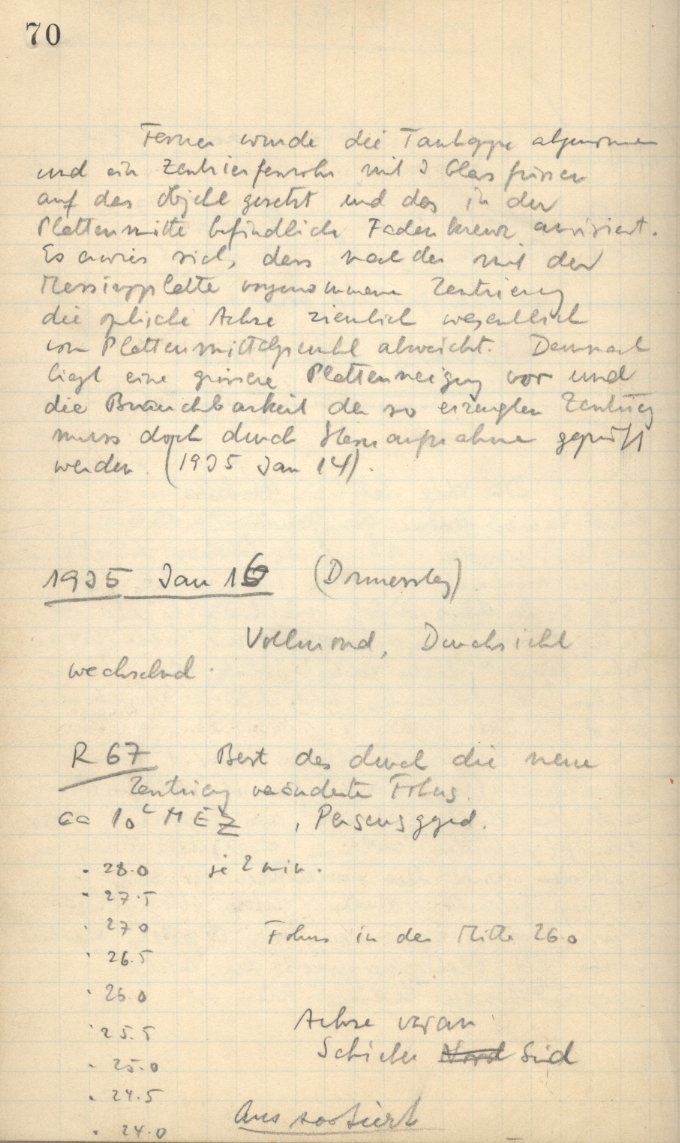 70
Ferner wurde die Taukappe abgenommen
und ein Zentrierfernrohr mit 3 Glasfüssen
auf das Objekt gesetzt und das in der
Plattenmitte befindliche Fadenkreuz anvisiert.
Es erwies sich, dass nach der mit der
Messingplatte vorgenommenen Zentrierung
die optische Achse ziemlich wesentlich
vom Plattenmittelpunkt abweicht. Demnach
liegt eine grössere Plattenneigung vor und
die Brauchbarkeit der so erzeugten Zentrierung
muss doch durch Sternaufnahme geprüft
werden. (1935 Jan 14).
1935 Jan 16 (Donnerstag)
Vollmond, Durchsicht
wechselnd.
R 67 Best des durch die neue
Zentrierung veränderten Fokus.
ca 10h MEZ, Perseusggd.
28.0 je 2 min.
27.5
27.0 Fokus in der Mitte 26.0
26.5
26.0
25.5 Achse voran
25.0 Schieber Nord Süd
24.5
24.0 Aussortiert